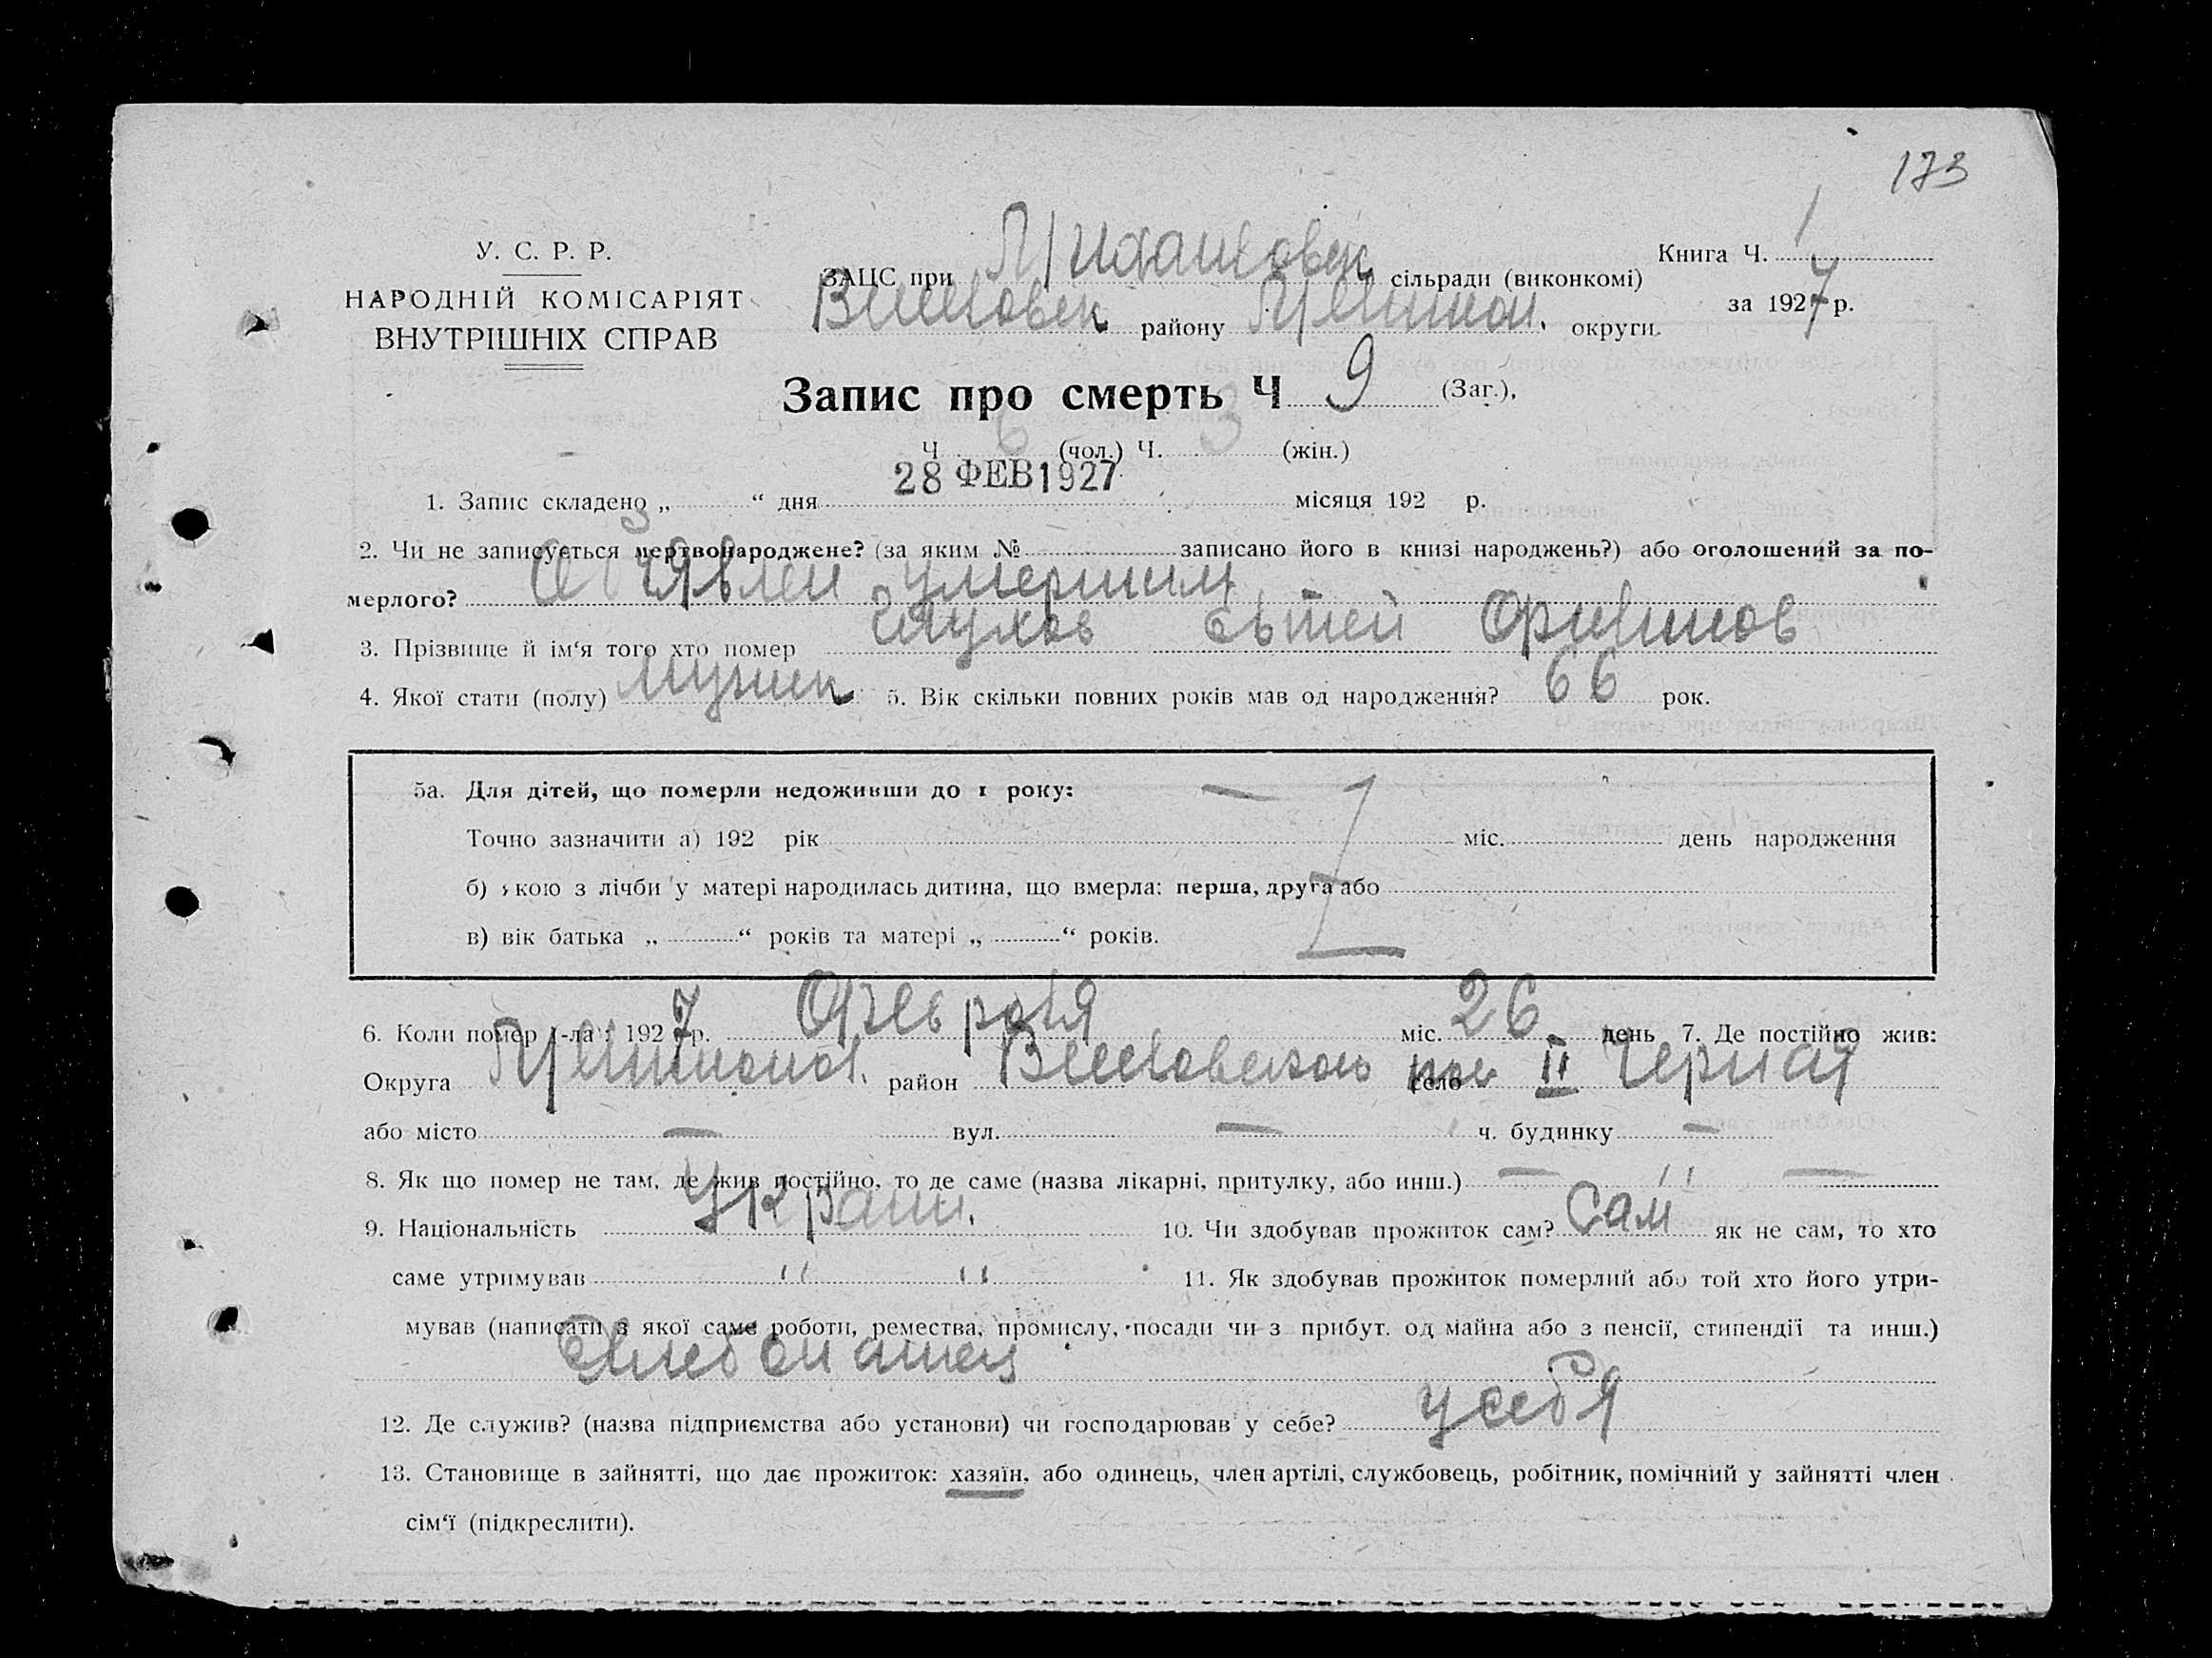 173
У. С. Р. Р.
НАРОДНІЙ КОМІСАРІЯТ
ВНУТРІШНІХ СПРАВ
ЗАЦС при сільради (виконкомі)
району округи.
Книга Ч. 1
за 1927 р.
Запис про смерть Ч 9 (Заг.),
Ч 6 (чол.) Ч. 3 (жін.)
1. Запис складено „ “ дня 28 ФЕВ 1927 місяця 192 р.
2. Чи не записується мертвонароджене? (за яким № записано його в книзі народжень?) або оголошений за по-
мерлого? Обʼявлен умершим
3. Прізвище й ім‘я того хто помер Глухов
4. Якої стати (полу) мужск 5. Вік скільки повних років мав од народження? 66 рок.
5а. Для дітей, що померли недоживши до 1 року: —
Точно зазначити а) 192 рік міс. день народження
б) якою з лічби у матері народилась дитина, що вмерла: перша, друга або
в) вік батька „ “ років та матері „ “ років.
6. Коли помер (-ла): 1927 р. Февраля міс. 26 день 7. Де постійно жив:
Округа район село II Черная
або місто — вул. — ч. будинку —
8. Як що помер не там, де жив постійно, то де саме (назва лікарні, притулку, або инш.) — " —
9. Національність Украин. 10. Чи здобував прожиток сам? Сам як не сам, то хто
саме утримував " " 11. Як здобував прожиток померлий або той хто його утри-
мував (написати з якої саме роботи, ремества, промислу, посади чи з прибут. од майна або з пенсії, стипендії та инш.)
Хлебопашец
12. Де служив? (назва підприємства або установи) чи господарював у себе? у себя
13. Становище в зайнятті, що дає прожиток: хазяїн, або одинець, член артілі, службовець, робітник, помічний у зайнятті член
сім‘ї (підкреслити).